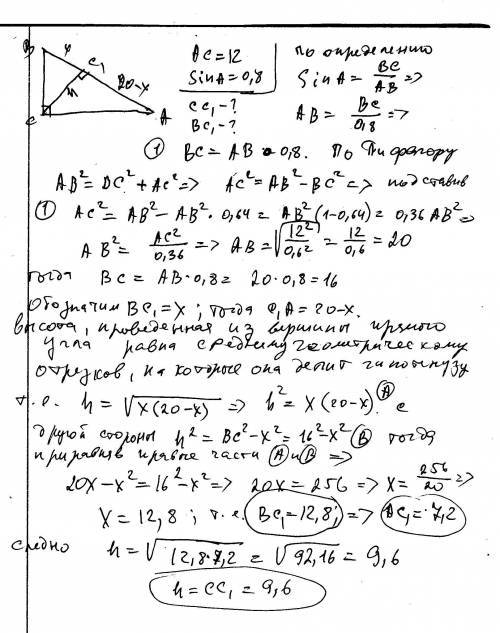 B x C₁ 20-x A C h
AC = 12
Sin A = 0,8
CC₁ - ?
BC₁ - ?
по определению
Sin A = BC/AB =>
AB = BC/0,8 =>
① BC = AB • 0,8. По Пифагору
AB² = BC² + AC² => AC² = AB² - BC² => подставив
① AC² = AB² - AB² · 0,64 = AB² (1-0,64) = 0,36 AB² =>
AB² = AC²/0,36 => AB = √(12²/0,6²) = 12/0,6 = 20
тогда BC = AB · 0,8 = 20 · 0,8 = 16
Обозначим BC₁ = X ; тогда C₁A = 20-x.
высота, проведенная из вершины прямого
угла равна среднему геометрическому
отрезков, на которые она делит гипотенузу
т.е. h = √(X(20-x)) => h² = X (20-x) Ⓐ с
другой стороны h² = BC² - X² = 16² - X² Ⓑ тогда
приравняв правые части Ⓐ и Ⓑ =>
20X - X² = 16² - X² => 20X = 256 => X = 256/20 =>
X = 12,8 ; т.е. BC₁ = 12,8; => AC₁ = 7,2
h = √(12,8·7,2) = √92,16 = 9,6
h = CC₁ = 9,6